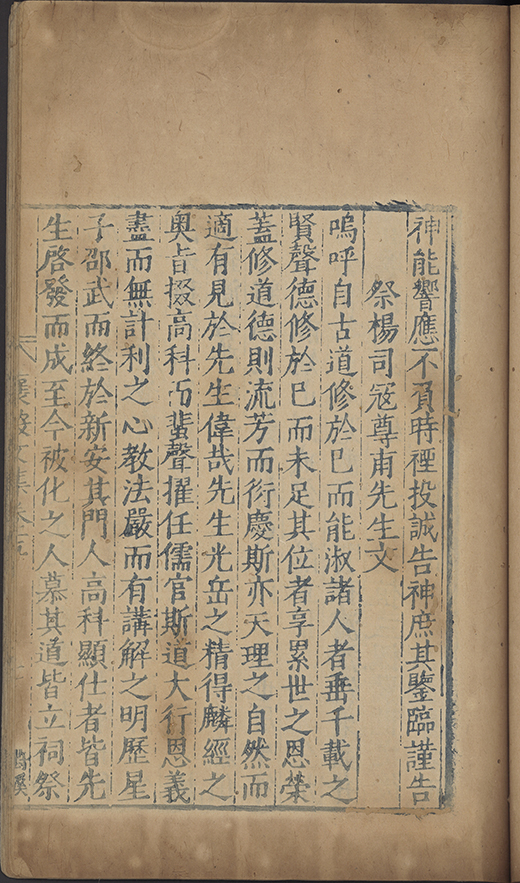 神能響應不負時禋投誠告神庶其鑒臨謹告
祭楊司寇尊甫先生文
嗚呼自古道修於巳而能淑諸人者垂千載之
賢聲德修於巳而未足其位者享累世之恩榮
蓋修道德則流芳而衍慶斯亦天理之自然而
適有見於先生偉哉先生光岳之精得麟經之
奥旨掇高科而蜚聲擢任儒官斯道大行恩義
盡而無計利之心教法嚴而有講解之明歷星
子邵武而終於新安其門人高科顯仕者皆先
生啓發而成至今被化之人慕其道皆立祠祭
文集卷五